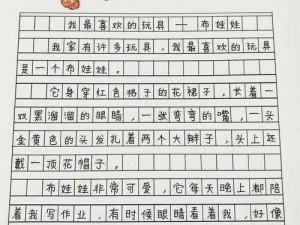 我最喜欢的玩具——布娃娃
我家有许多玩具，我最喜欢的玩具
是一个布娃娃。
它身穿红色格子的花裙子，长着一
双黑溜溜的眼睛，一张弯弯的嘴，一头
金黄色的头发扎着两个大辫子，头上还
戴一顶花帽子。
布娃娃非常可爱，它每天晚上都陪
着我写作业，有时候眼睛看着我，好像